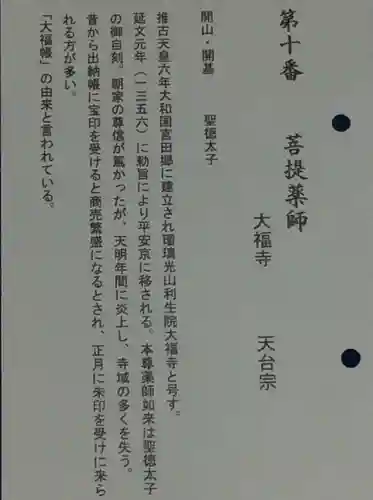 第十番　菩提薬師
大福寺　天台宗
開山・開基　聖徳太子
推古天皇六年大和国宮田郷に建立され瑠璃光山利生院大福寺と号す。
延文元年（一三五六）に勅旨により平安京に移される。本尊薬師如来は聖徳太子
の御自刻。朝家の尊信が篤かったが、天明年間に炎上し、寺域の多くを失う。
昔から出納帳に宝印を受けると商売繁盛になるとされ、正月に朱印を受けに来ら
れる方が多い。
「大福帳」の由来と言われている。